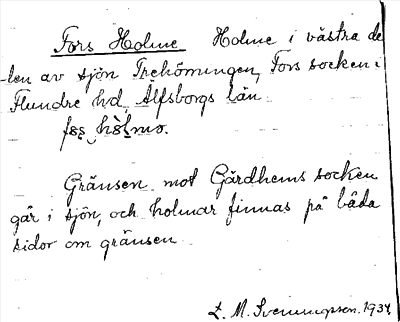 Fors Holme Holme i västra de
-len av sjön Trehörningen, Fors socken i
Flundre hd, Älfsborgs län.
Gränsen mot Gärdhems socken
går i sjön, och holmar finnas på båda
sidor om gränsen.
L. M. Svenungsson. 1934.